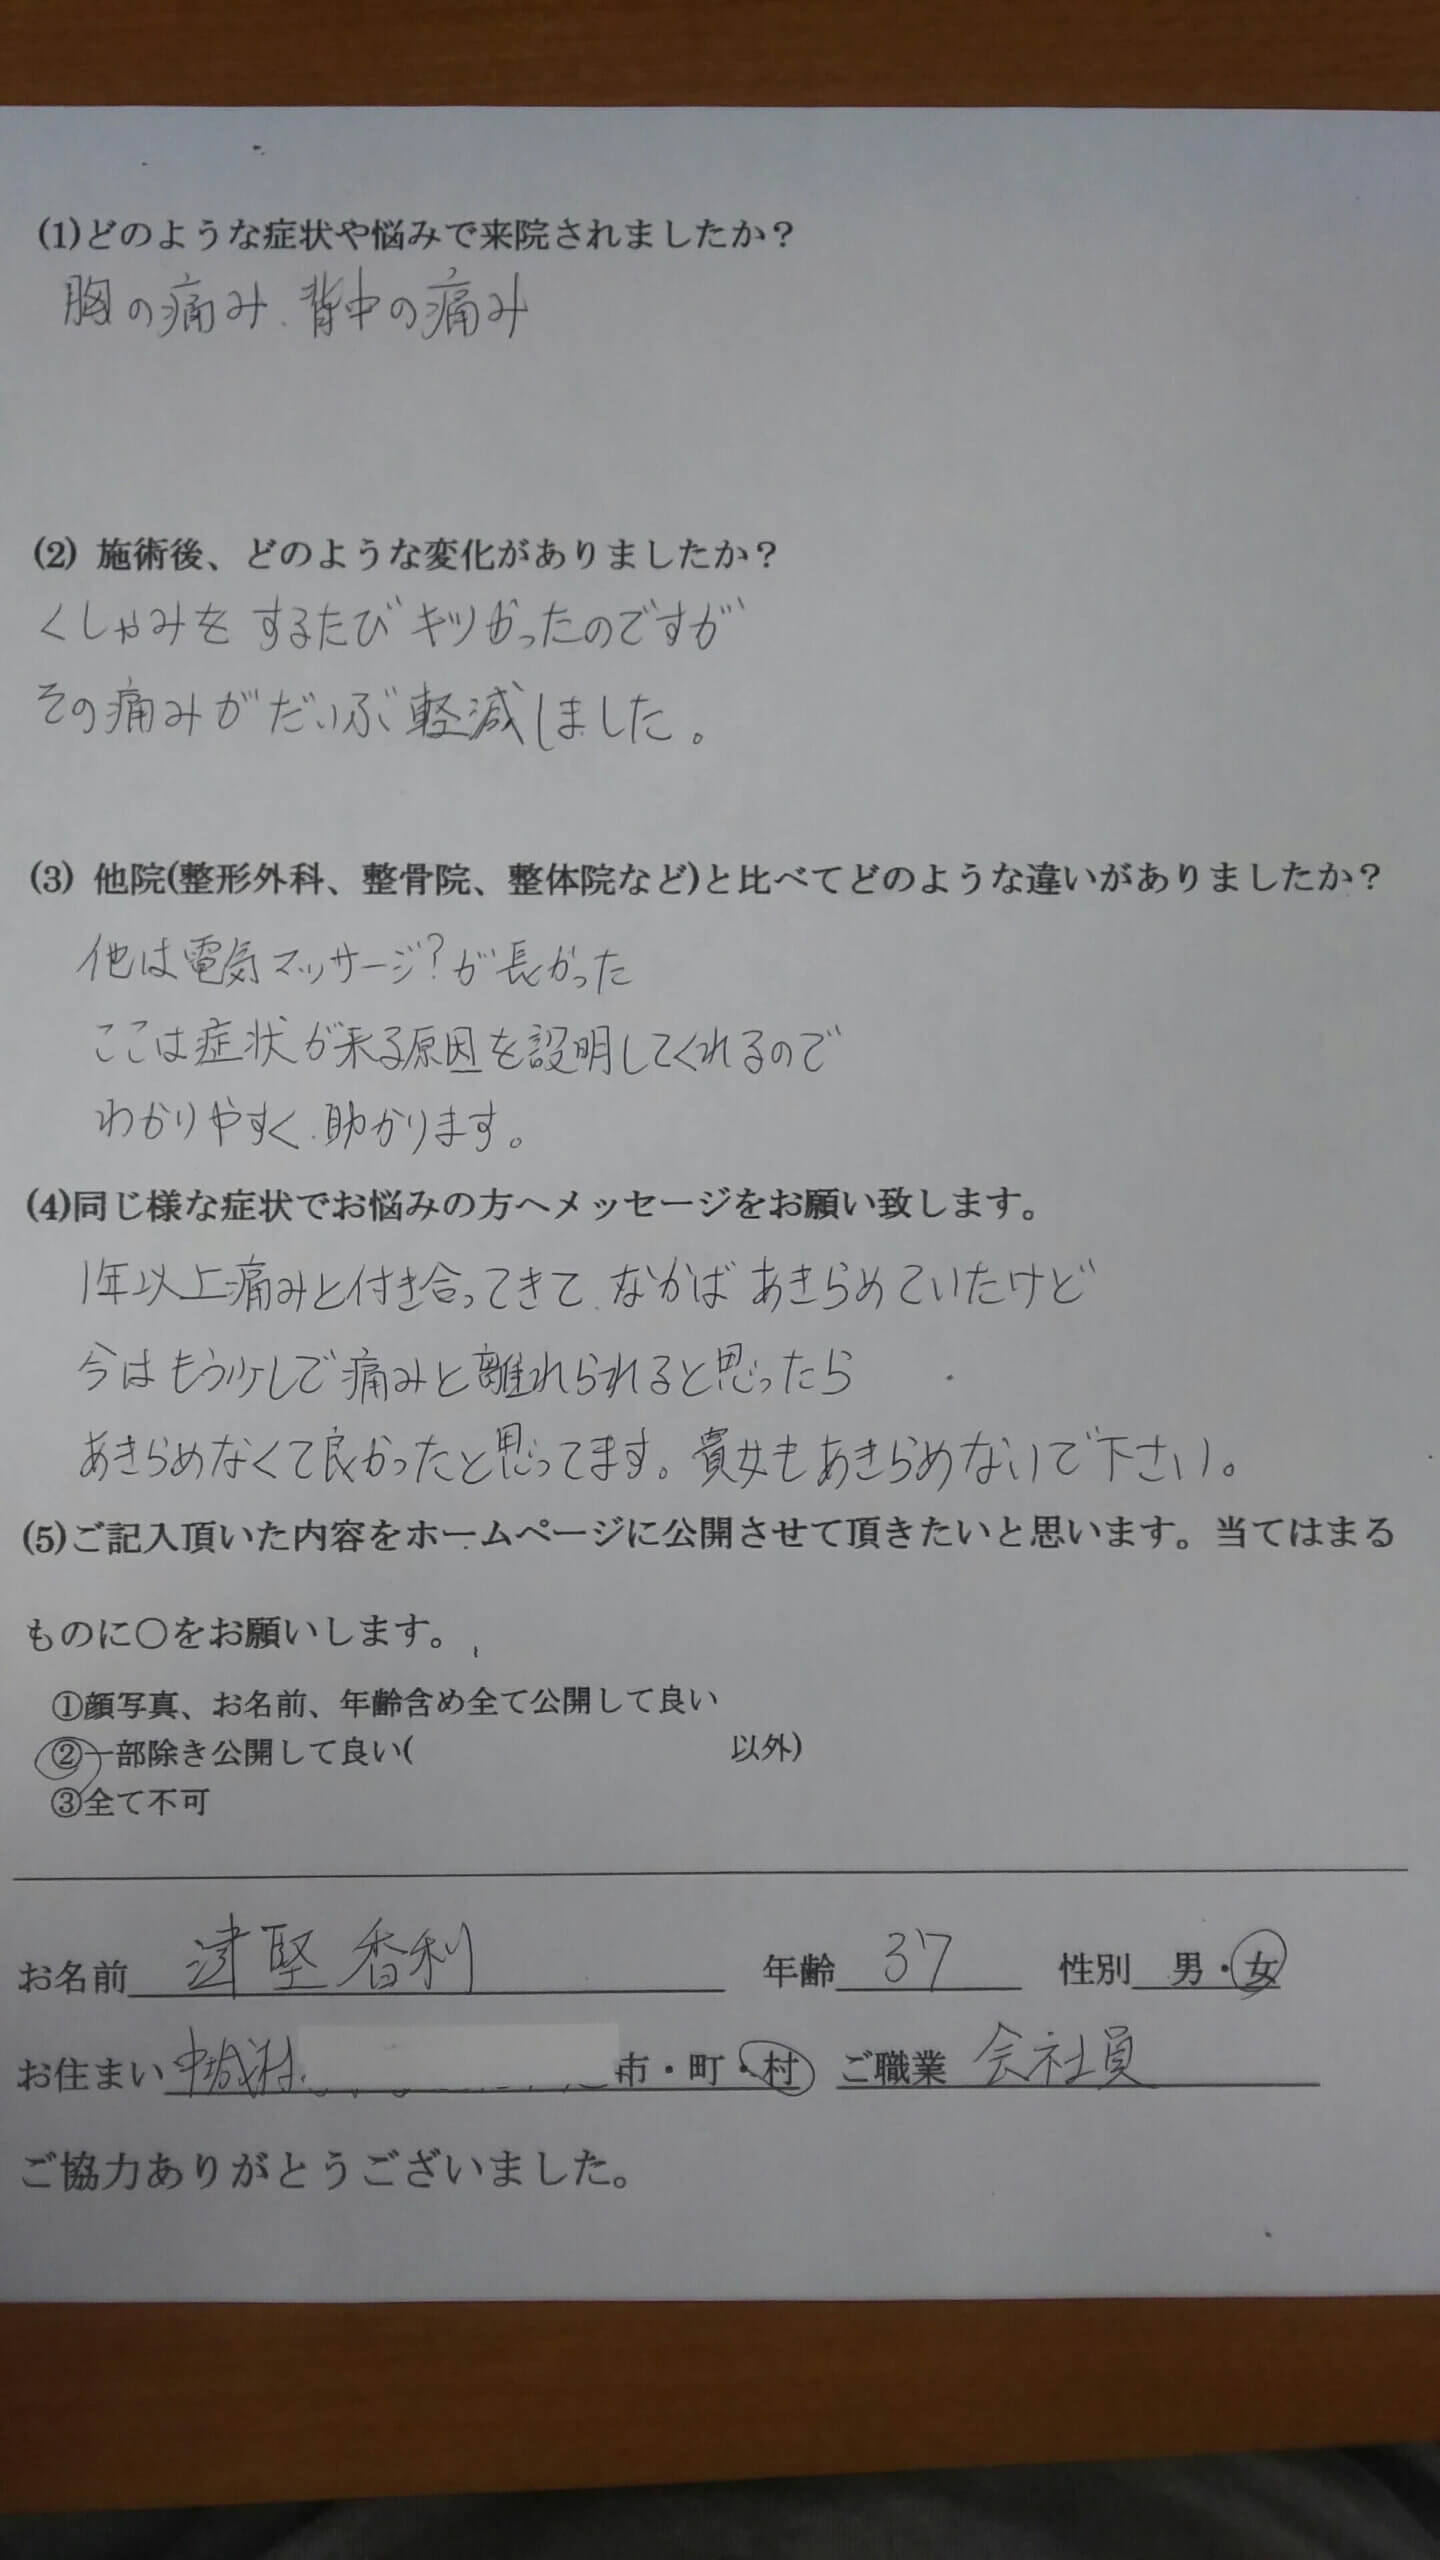 (1)どのような症状や悩みで来院されましたか？
胸の痛み、背中の痛み
(2) 施術後、どのような変化がありましたか？
くしゃみを するたび キツかったのですが
その痛みが だいぶ 軽減しました。
(3) 他院(整形外科、整骨院、整体院など)と比べてどのような違いがありましたか？
他は電気マッサージ?が長かった
ここは症状が来る原因を説明してくれるので
わかりやすく、助かります。
(4)同じ様な症状でお悩みの方へメッセージをお願い致します。
1年以上痛みと付き合ってきて、なかば あきらめていたけど
今はもう少しで痛みと離れられると思ったら
あきらめなくて良かったと思ってます。貴女もあきらめないで下さい。
(5)ご記入頂いた内容をホームページに公開させて頂きたいと思います。当てはまる
ものに〇をお願いします。
①顔写真、お名前、年齢含め全て公開して良い
②一部除き公開して良い( 以外)
③全て不可
お名前 津堅 香利 年齢 37 性別 男・女
お住まい 中城村 市・町・村 ご職業 会社員
ご協力ありがとうございました。